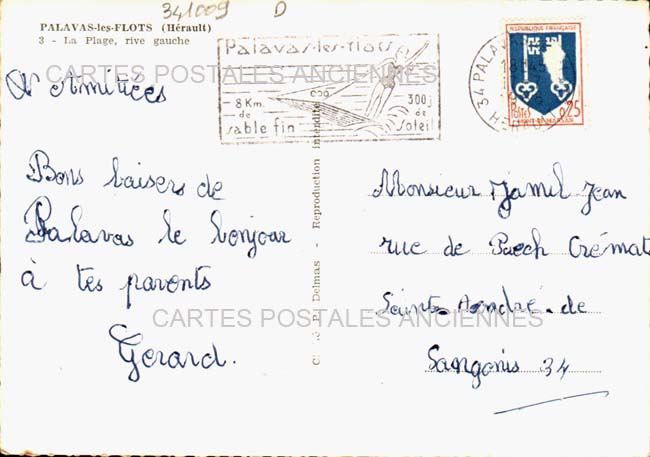 341009 D
PALAVAS-les-FLOTS (Hérault)
3 - La Plage, rive gauche
Palavas-les-flots
8 Km. de sable fin
300j de soleil
34 PALAV
HERAULT
REPUBLIQUE FRANÇAISE
POSTES 0,25
MONT-DE-MARSAN
CARTES POSTALES ANCIENNES
Amitiées
Bons baisers de
Palavas le bonjour
à tes parents
Gerard.
P. Delmas - Reproduction interdite
Monsieur Jamil Jean
rue de Puech Crémat
Saint-André-de
Sangonis 34
CARTES POSTALES ANCIENNES